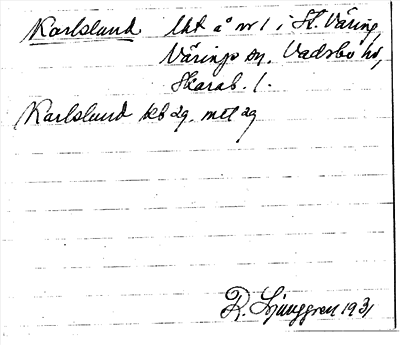 Karlslund lht å nr 1 i St. Väring,
Värings sn. Vadsbo hd,
Skarab. l.
Karlslund kb 29. mtl 29
R. Ljunggren 1931